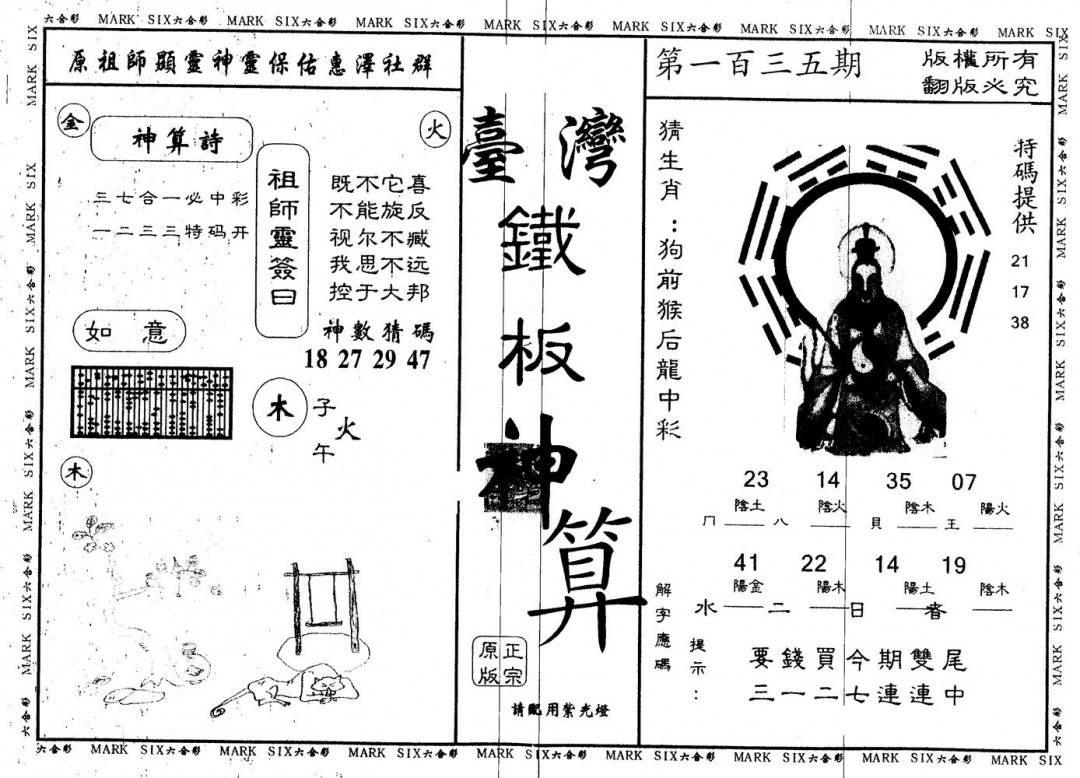 六合彩 MARK SIX六合彩 MARK SIX六合彩 MARK SIX六合彩 MARK SIX六合彩 MARK SIX六合彩 MARK SIX六合彩 MARK SIX六合彩 MARK SIX
原祖師顯靈神靈保佑惠澤社群
金
神算詩
火
三七合一必中彩
一二三三特码开
祖師靈簽曰
既不它喜
不能旋反
视尔不臧
我思不远
控于大邦
神數猜碼
18 27 29 47
如意
木
子
火
午
木
臺灣
鐵
板
神
算
正宗
原版
請配用紫光燈
第一百三五期
版權所有
翻版必究
猜生肖:狗前猴后龍中彩
特碼提供
21
17
38
23 14 35 07
陰土 陰火 陰木 陽火
冂 八 貝 王
41 22 14 19
陽金 陽木 陽土 陰木
水 二 日 者
解字應碼
提示:
要錢買今期雙尾
三一二七連連中
六合彩 MARK SIX六合彩 MARK SIX六合彩 MARK SIX六合彩 MARK SIX六合彩 MARK SIX六合彩 MARK SIX六合彩 MARK SIX六合彩 MARK SIX